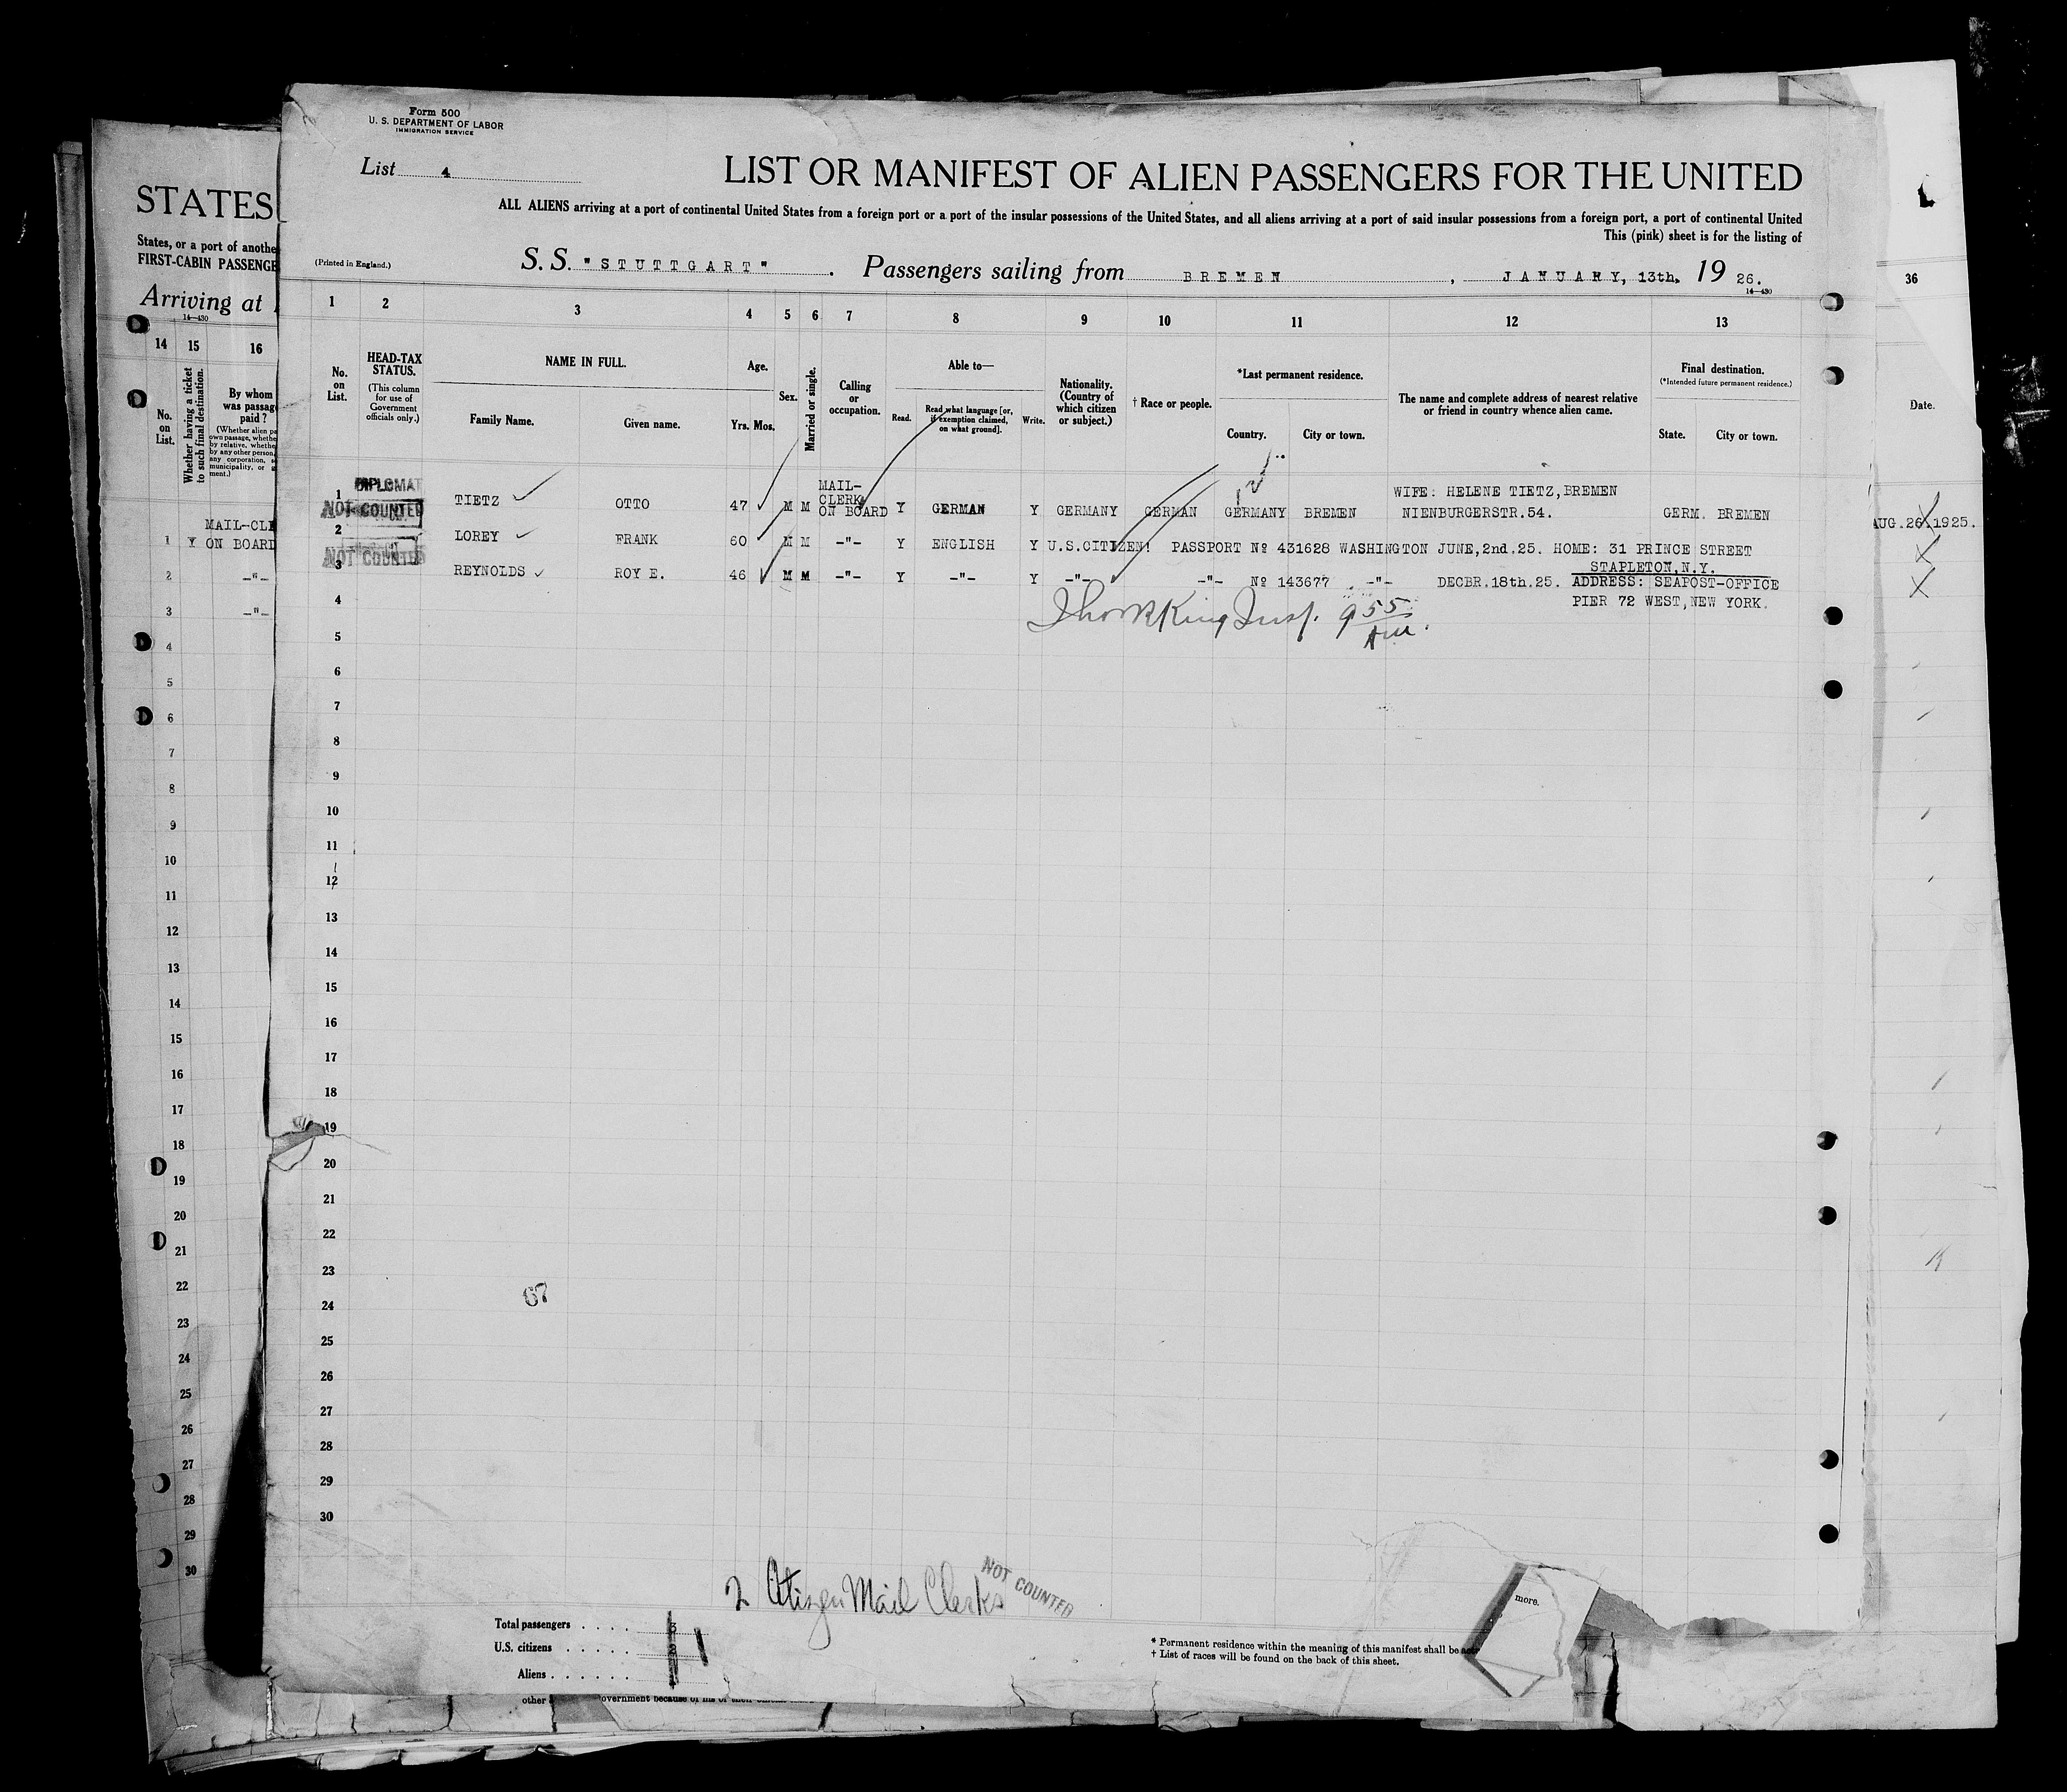 Form 500
U. S. DEPARTMENT OF LABOR
IMMIGRATION SERVICE
List 4
LIST OR MANIFEST OF ALIEN PASSENGERS FOR THE UNITED
ALL ALIENS arriving at a port of continental United States from a foreign port or a port of the insular possessions of the United States, and all aliens arriving at a port of said insular possessions from a foreign port, a port of continental United
This (pink) sheet is for the listing of
(Printed in England.)
S. S. "STUTTGART". Passengers sailing from BREMEN, JANUARY, 13th, 19 26.
14—430
1 2 3 4 5 6 7 8 9 10 11 12 13
No. on List.
HEAD-TAX STATUS.
(This column for use of Government officials only.)
NAME IN FULL.
Family Name. Given name.
Age.
Yrs. Mos.
Sex.
Married or single.
Calling or occupation.
Able to—
Read. Read what language [or, if exemption claimed, on what ground]. Write.
Nationality. (Country of which citizen or subject.)
† Race or people.
*Last permanent residence.
Country. City or town.
The name and complete address of nearest relative or friend in country whence alien came.
Final destination.
(*Intended future permanent residence.)
State. City or town.
DIPLOMAT
NOT COUNTED
1 TIETZ OTTO 47 M M MAIL-CLERK ON BOARD Y GERMAN Y GERMANY GERMAN GERMANY BREMEN WIFE: HELENE TIETZ,BREMEN NIENBURGERSTR.54. GERM. BREMEN
2 LOREY FRANK 60 M M -"- Y ENGLISH Y U.S.CITIZEN! PASSPORT Nº 431628 WASHINGTON JUNE,2nd.25. HOME: 31 PRINCE STREET
STAPLETON,N.Y.
NOT COUNTED
3 REYNOLDS ROY E. 46 M M -"- Y -"- Y -"- -"- Nº 143677 -"- DECBR.18th.25. ADDRESS: SEAPOST-OFFICE
PIER 72 WEST,NEW YORK.
King Insp. 9 55 AM.
4
5
6
7
8
9
10
11
12
13
14
15
16
17
18
19
20
21
22
23
67
24
25
26
27
28
29
30
2 Citizen Mail Clerks
NOT COUNTED
Total passengers . . . .
U.S. citizens . . . . .
Aliens . . . . . .
* Permanent residence within the meaning of this manifest shall be
† List of races will be found on the back of this sheet.
more.
other
overnment because of his or their
STATES
States, or a port of anothe
FIRST-CABIN PASSENGE
Arriving at
14—430
14 15 16
No. on List.
Whether having a ticket to such final destination.
By whom was passag paid?
(Whether alien pa
own passage, whethe
by relative, whethe
by any other person,
any corporation, s
municipality, or
ment.)
1 Y MAIL-CLE
ON BOARD
2 -"-
3 -"-
4
5
6
7
8
9
10
11
12
13
14
15
16
17
18
19
20
21
22
23
24
25
26
27
28
29
30
36
Date.
AUG.26.1925.